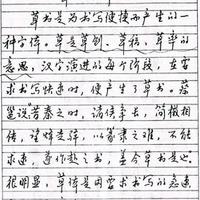 草书是为书写便捷而产生的一
种字体。草是草创、草稿、草率的
意思，汉字演进的每个阶段，在需
求书写快速时，便产生了草书。蔡
邕说"昔秦之时，诸侯争长，简檄相
传，望烽走驿，以篆隶之难，不能
求速，遂作赴之书，盖今草书是也"
很明显，草体是因需求书写的急速